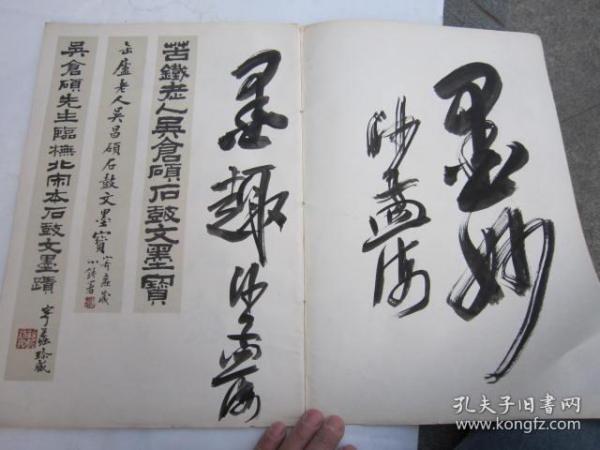 墨妙
沙孟海
墨趣
沙孟海
苦鐵老人吳倉碩石鼓文墨寶
缶廬老人吳昌碩石鼓文墨寶
吳倉碩先生臨橅北宋本石鼓文墨蹟
珍藏
孔夫子旧书网
www.kongfz.com